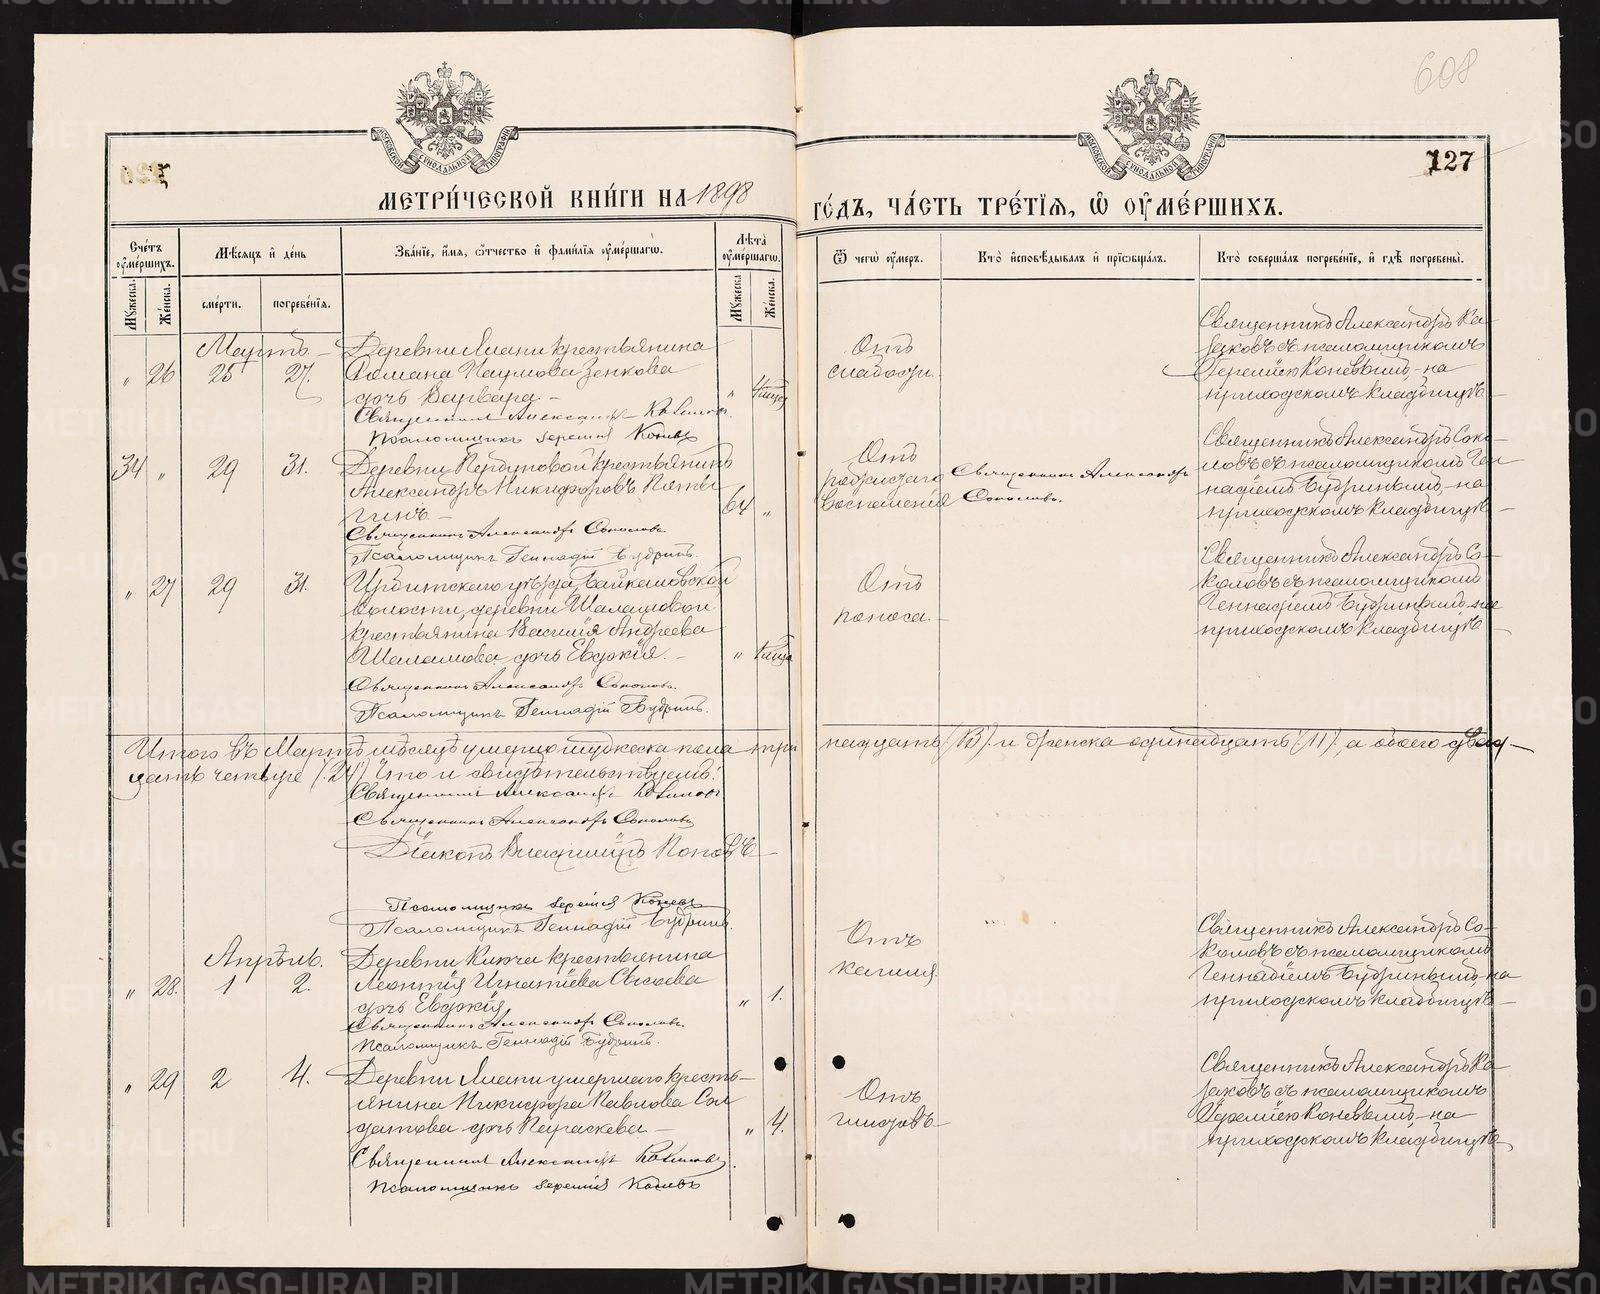 608
127
МЕТРИ́ЧЕСКОЙ КНИ́ГИ НА 1898
ГО́ДЪ, ЧА́СТЬ ТРЕ́ТІѦ, Ѡ҆ ОУ҆МЕ́РШИХЪ.
МОСКОВСКОЙ СИНОДАЛЬНОЙ ТИПОГРАФІИ
МОСКОВСКОЙ СИНОДАЛЬНОЙ ТИПОГРАФІИ
Сче́тъ оу҆ме́ршихъ.
Мꙋ́жеска.
Же́нска.
Мѣ́сяцъ и҆ де́нь
сме́рти.
погребе́нїя.
Зва́нїе, и҆́мя, ѻ҆́тчество и҆ фамі́лїя оу҆ме́ршагѡ.
Лѣ́та оу҆ме́ршагѡ.
Мꙋ́жеска
Же́нска.
Ѿ чегѡ̀ оу҆́меръ.
Кто̀ и҆сповѣ́дывалъ и҆ прїѡбща́лъ.
Кто̀ соверша́лъ погребе́нїе, и҆ гдѣ̀ погребены̀.
Мартъ
„ 26 25 27.
Деревни Ляги крестьянина
Романа Наумова Зенкова
дочь Варвара
Священникъ Александръ Казаковъ.
Псаломщикъ Іеремія Коневъ
Отъ
слабости.
Священникъ Александръ Ка-
заковъ съ псаломщикомъ
Іереміею Коневымъ, на
приходскомъ кладбищѣ
34 „ 29 31.
крестьянинъ
Александръ Никифоровъ
64 „
Священникъ Александръ Соколовъ.
Псаломщикъ Геннадій Будринъ.
Отъ
воспаленія
Священникъ Александръ
Соколовъ.
Священникъ Александръ Соко-
ловъ съ псаломщикомъ Ген
надіемъ Будринымъ, на
приходскомъ кладбищѣ
„ 27 29 31.
Ирбитскаго уѣзда, Байкаловской
волости, деревни Шаламовой
крестьянина Василія Андреева
Шаламова дочь Евдокія.
Священникъ Александръ Соколовъ.
Псаломщикъ Геннадій Будринъ.
Отъ
поноса.
Священникъ Александръ Со-
коловъ съ псаломщикомъ
Геннадіемъ Будринымъ, на
приходскомъ кладбищѣ
Итого въ Мартѣ мѣсяцѣ умерло мужеска пола три
надцать (13) и женска одинадцать (11), а обоего двад-
цать четыре (24) Что и свидѣтельствуемъ:
Священникъ Александръ Казаковъ
Священникъ Александръ Соколовъ
Діаконъ Владиміръ Поповъ
Псаломщикъ Іеремія Коневъ
Псаломщикъ Геннадій Будринъ.
Апрѣль.
„ 28. 1 2.
Деревни Ключи крестьянина
Леонтія Игнатіева Сысоева
дочь Евдокія
„ 1.
Священникъ Александръ Соколовъ.
Псаломщикъ Геннадій Будринъ.
Отъ
кашля
Священникъ Александръ Со-
коловъ съ псаломщикомъ
Геннадіемъ Будринымъ, на
приходскомъ кладбищѣ
„ 29 2 4.
Деревни Ляги умершаго кресть-
янина Никифора Павлова Сол
датова дочь Параскева
„ 4.
Священникъ Александръ Казаковъ.
Псаломщикъ Іеремія Коневъ
Отъ
глистовъ
Священникъ Александръ Ка
заковъ съ псаломщикомъ
Іереміею Коневымъ, на
приходскомъ кладбищѣ
METRIKI.GASO-URAL.RU